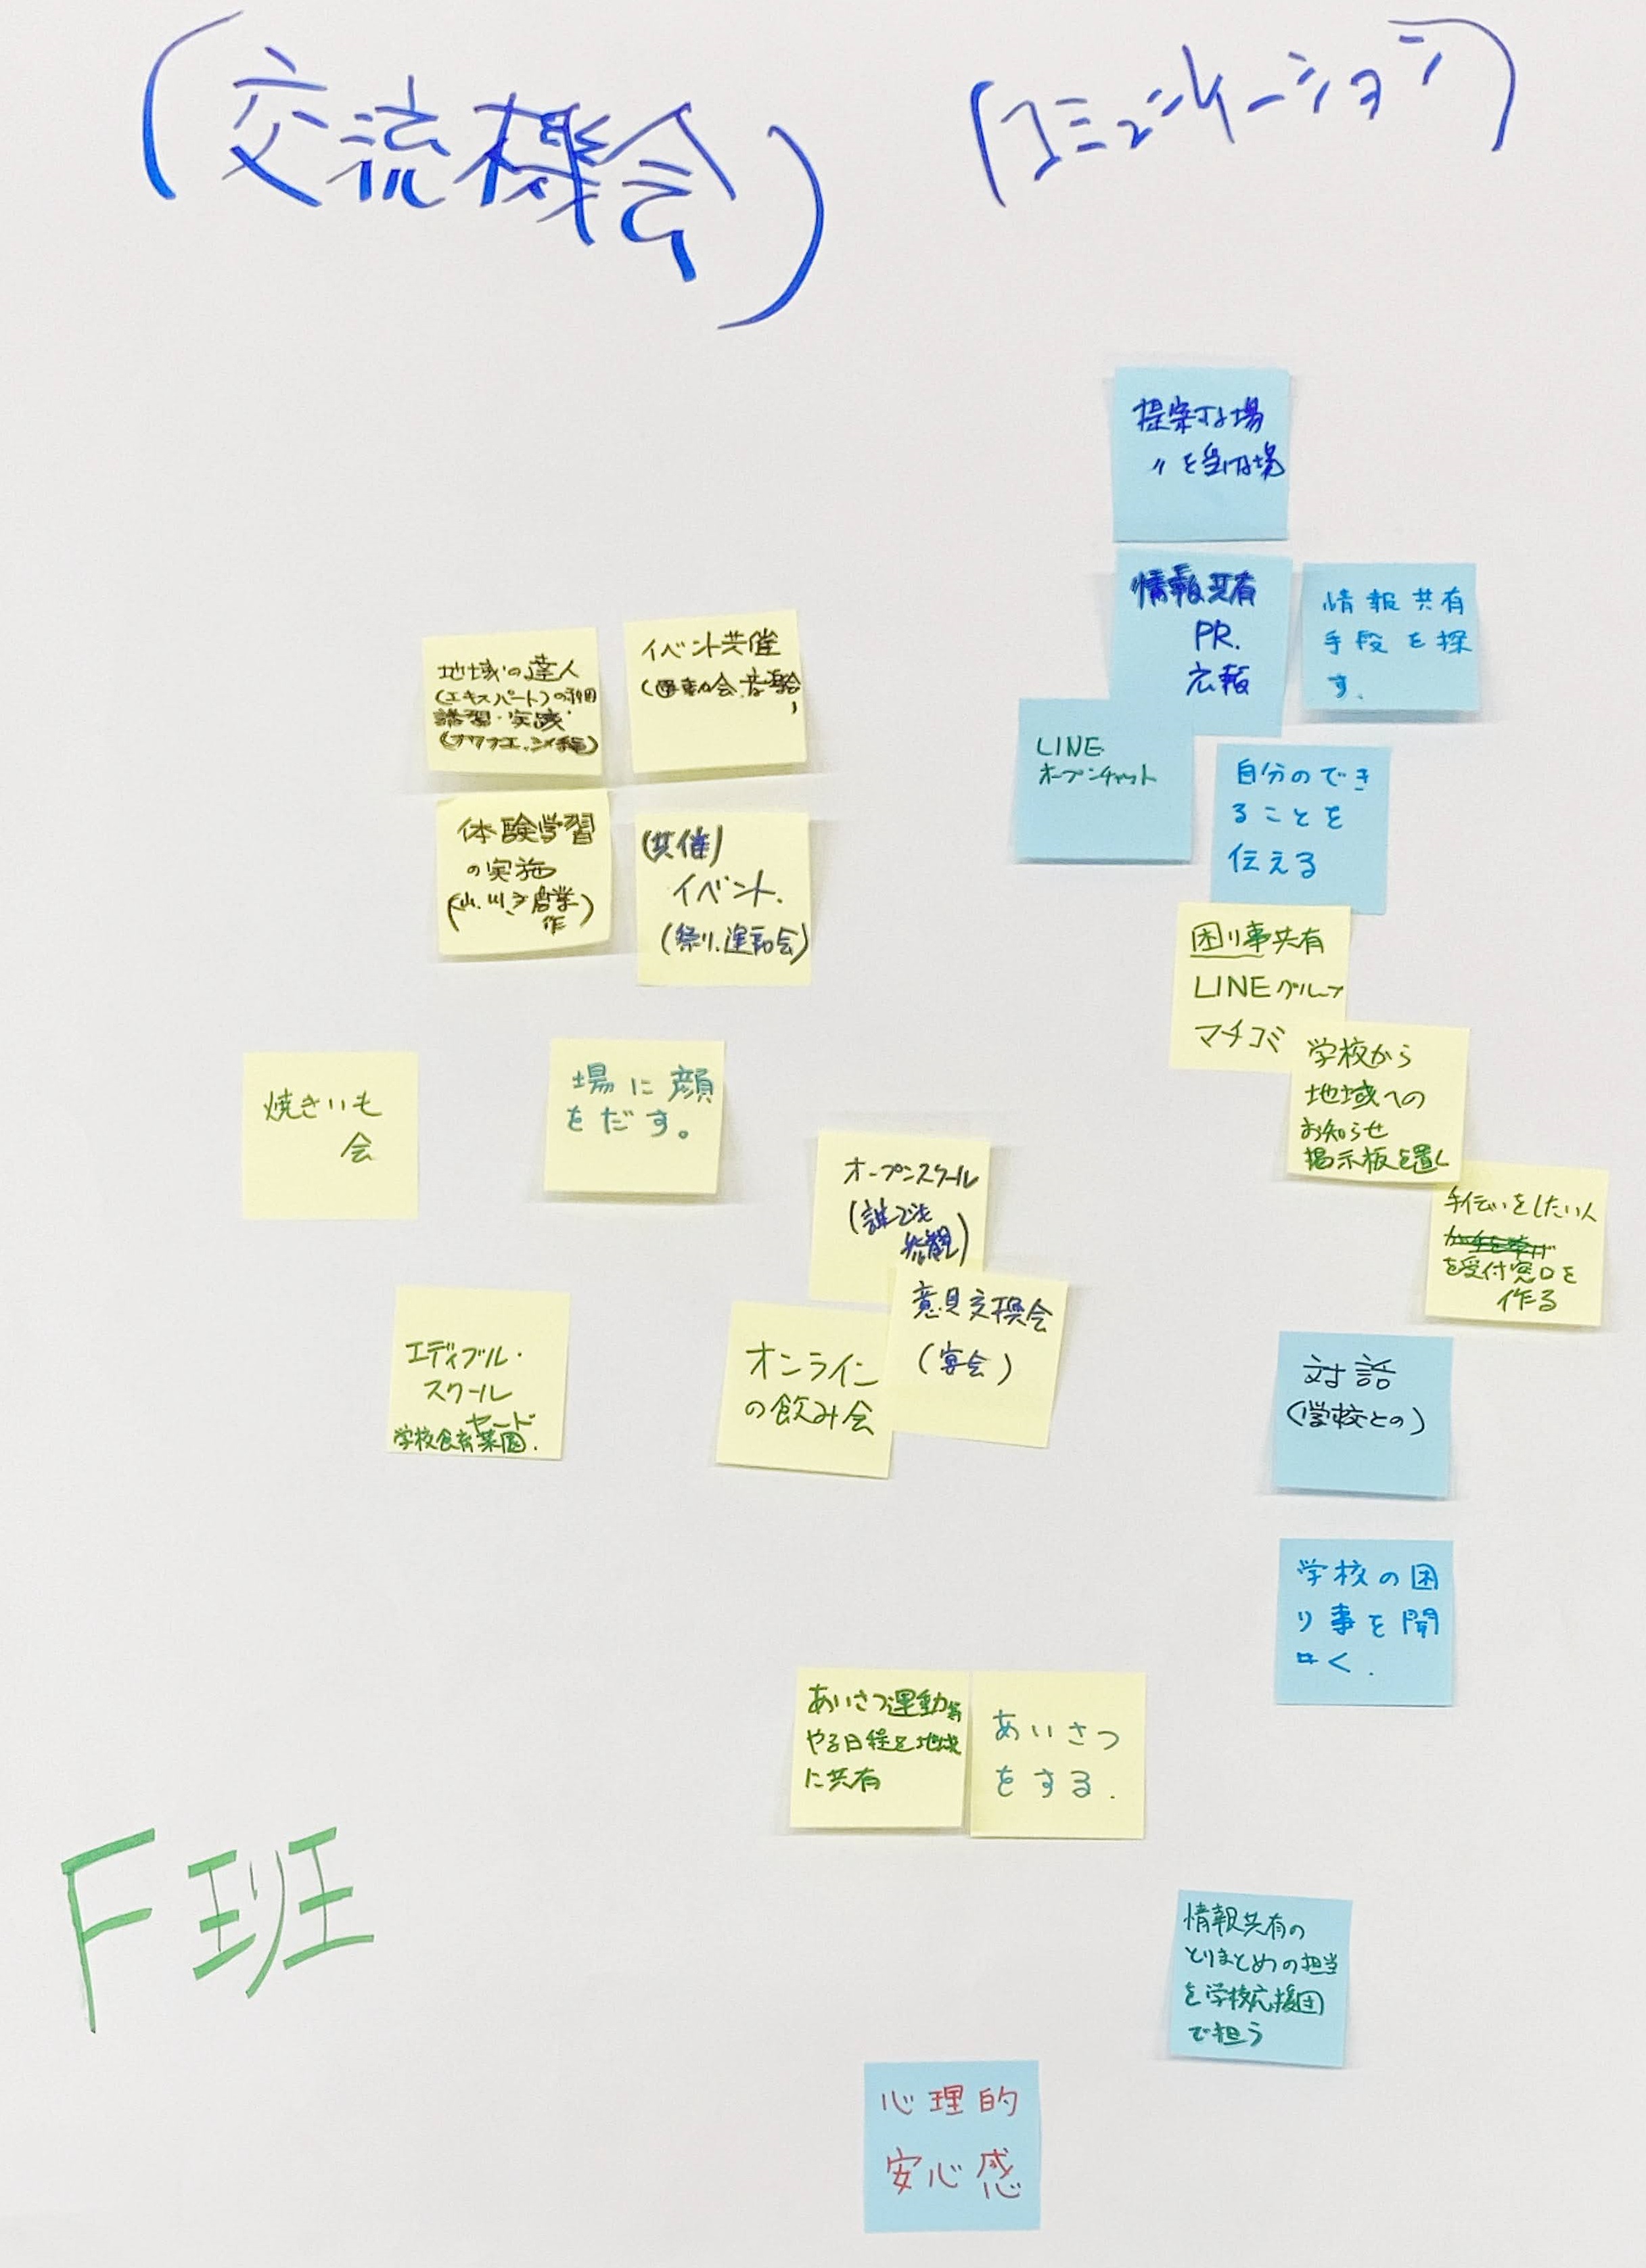 (交流機会)
(コミュニケーション)
提案する場
〃を受ける場
情報共有
PR.
広報
情報共有
手段を探
す.
LINE
オープンチャット
自分のでき
ることを
伝える
困り事共有
LINEグループ
マチコミ
学校から
地域への
お知らせ
掲示板を置く
手伝いをしたい人
を受付窓口を
作る
対話
(学校との)
学校の困
り事を聞
く.
地域の達人
(エキスパート)の
講習・実践
イベント共催
(運動会.音楽会
)
体験学習
の実施
(山.川.
作)
(共催)
イベント.
(祭り.運動会)
焼きいも
会
場に顔
をだす。
オープンスクール
(誰でも
参観)
意見交換会
(宴会)
オンライン
の飲み会
エディブル・
スクール
ヤード
学校食育菜園.
あいさつ運動等
やる日程を地域
に共有
あいさつ
をする.
F班
情報共有の
とりまとめの担当
を学校応援団
で担う
心理的
安心感